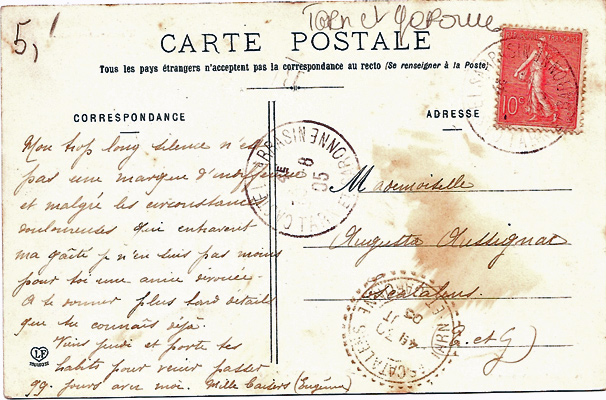 5,
Tarn et Garonne
CARTE POSTALE
Tous les pays étrangers n'acceptent pas la correspondance au recto (Se renseigner à la Poste)
CORRESPONDANCE
ADRESSE
Mon trop long silence n'est
pas une marque d'indifférence
et malgré les circonstances
douloureuses qui entravent
ma gaîté je n'en suis pas moins
pour toi une amie dévouée.
A te donner plus tard détails
que tu connais déjà.
Viens jeudi et porte tes
habits pour venir passer
qq. jours avec moi. Mille baisers (Eugénie)
Mademoiselle
Augusta Aussignac
Escatalens
(T. et G)
10c
CASTELSARRASIN
TARN-ET-GARONNE
8
05
ESCATALENS
LF
TOULOUSE